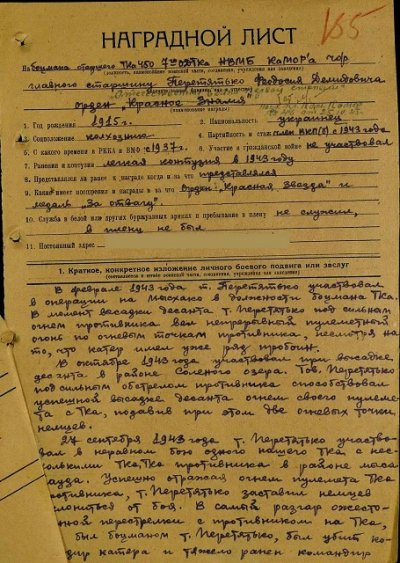 155
НАГРАДНОЙ ЛИСТ
На боцмана ТКА 7го НВМБ КаМОР'а ЧФ
главного старшину Перетятько Феодосия Демидовича
орден „Красное Знамя"
1. Год рождения 1915 г. 2. Национальность украинец
3. Соцположение колхозник 4. Партийность и стаж член ВКП(б) с 1943 года
5. С какого времени в РККА и ВМФ с 1937 г. 6. Участие в гражданской войне не участвовал
7. Ранения и контузии легкая контузия в 1943 году
8. Представлялся ли ранее к награде когда и за что представлялся
9. Какие имеет поощрения и награды и за что Орден „Красная Звезда" и
медаль „За отвагу".
10. Служба в белой или других буржуазных армиях и пребывание в плену не служил,
в плену не был
11. Постоянный адрес
1. Краткое, конкретное изложение личного боевого подвига или заслуг
В феврале 1943 года т. Перетятько участвовал
в операции на Мысхако в должности боцмана ТКа.
В момент высадки десанта т. Перетятько под сильным
огнем противника вел непрерывный пулеметный
огонь по огневым точкам противника, несмотря на
то, что катер имел уже ряд пробоин.
В октябре 1943 года участвовал при высадке
десанта в районе Соленого озера. Тов. Перетятько
под сильным обстрелом противника способствовал
успешной высадке десанта огнем своего пулеме-
та с ТКа, подавив при этом две огневых точки
немцев.
27 сентября 1943 года т. Перетятько участво-
вал в неравном бою одного нашего ТКа с нес-
колькими ТКа противника в районе мыса
Успешно отражая огнем пулемета ТКа
противника, т. Перетятько заставил немцев
уклониться от боя. В самый разгар ожесто-
ченной перестрелки с противником на ТКа,
был боцманом т. Перетятько, был убит ко-
мандир катера и тяжело ранен командир